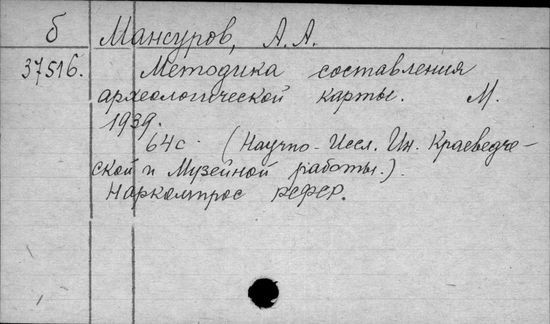 б Мансуров, А. А.
37516. Методика составления
археологической карты. М.
1939.
64с. (Научно-Иссл. Ин. Краеведче-
ской и Музейной работы.).
Наркомпрос РСФСР.